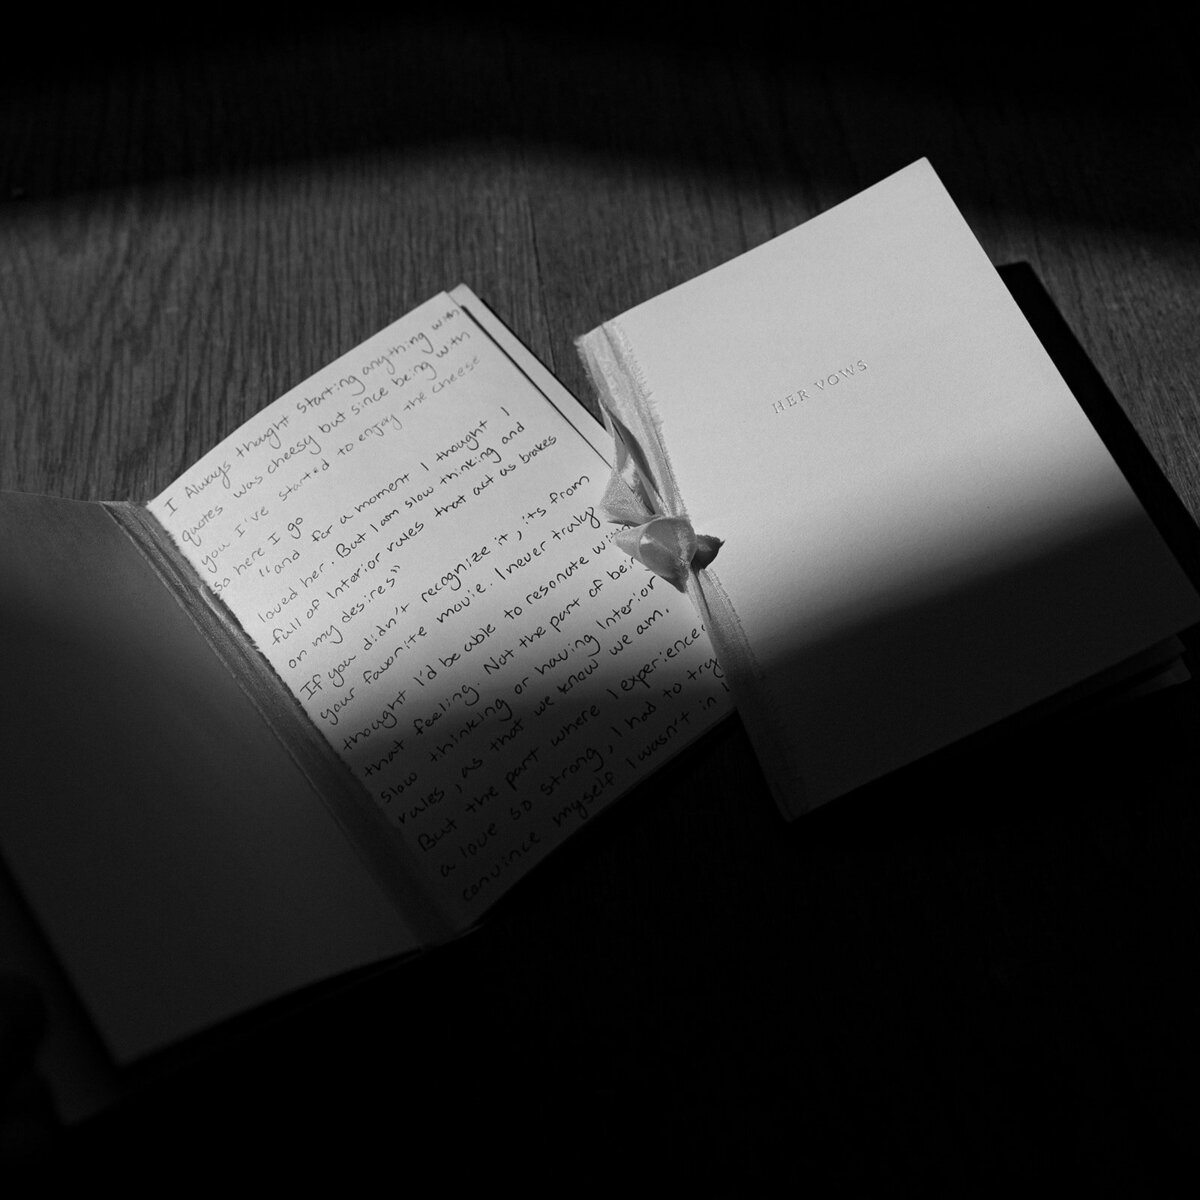 I Always thought starting anything with
quotes was cheesy but since being with
you I've started to enjoy the cheese
so here I go
"and for a moment I thought I
loved her. But I am slow thinking and
full of Interior rules that act as brakes
on my desires"
If you didn't recognize it, its from
your favorite movie. I never truly
thought I'd be able to resonate with
that feeling. Not the part of bein
slow thinking or having Interior
rules, as that we know we am.
But the part where I experience,
a love so strong, I had to try
convince myself I wasn't in
HER VOWS